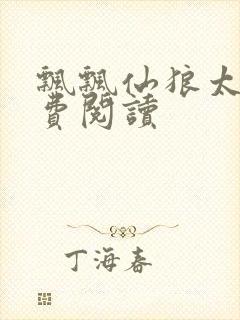 飄飄仙狼太
費閱讀
丁海春